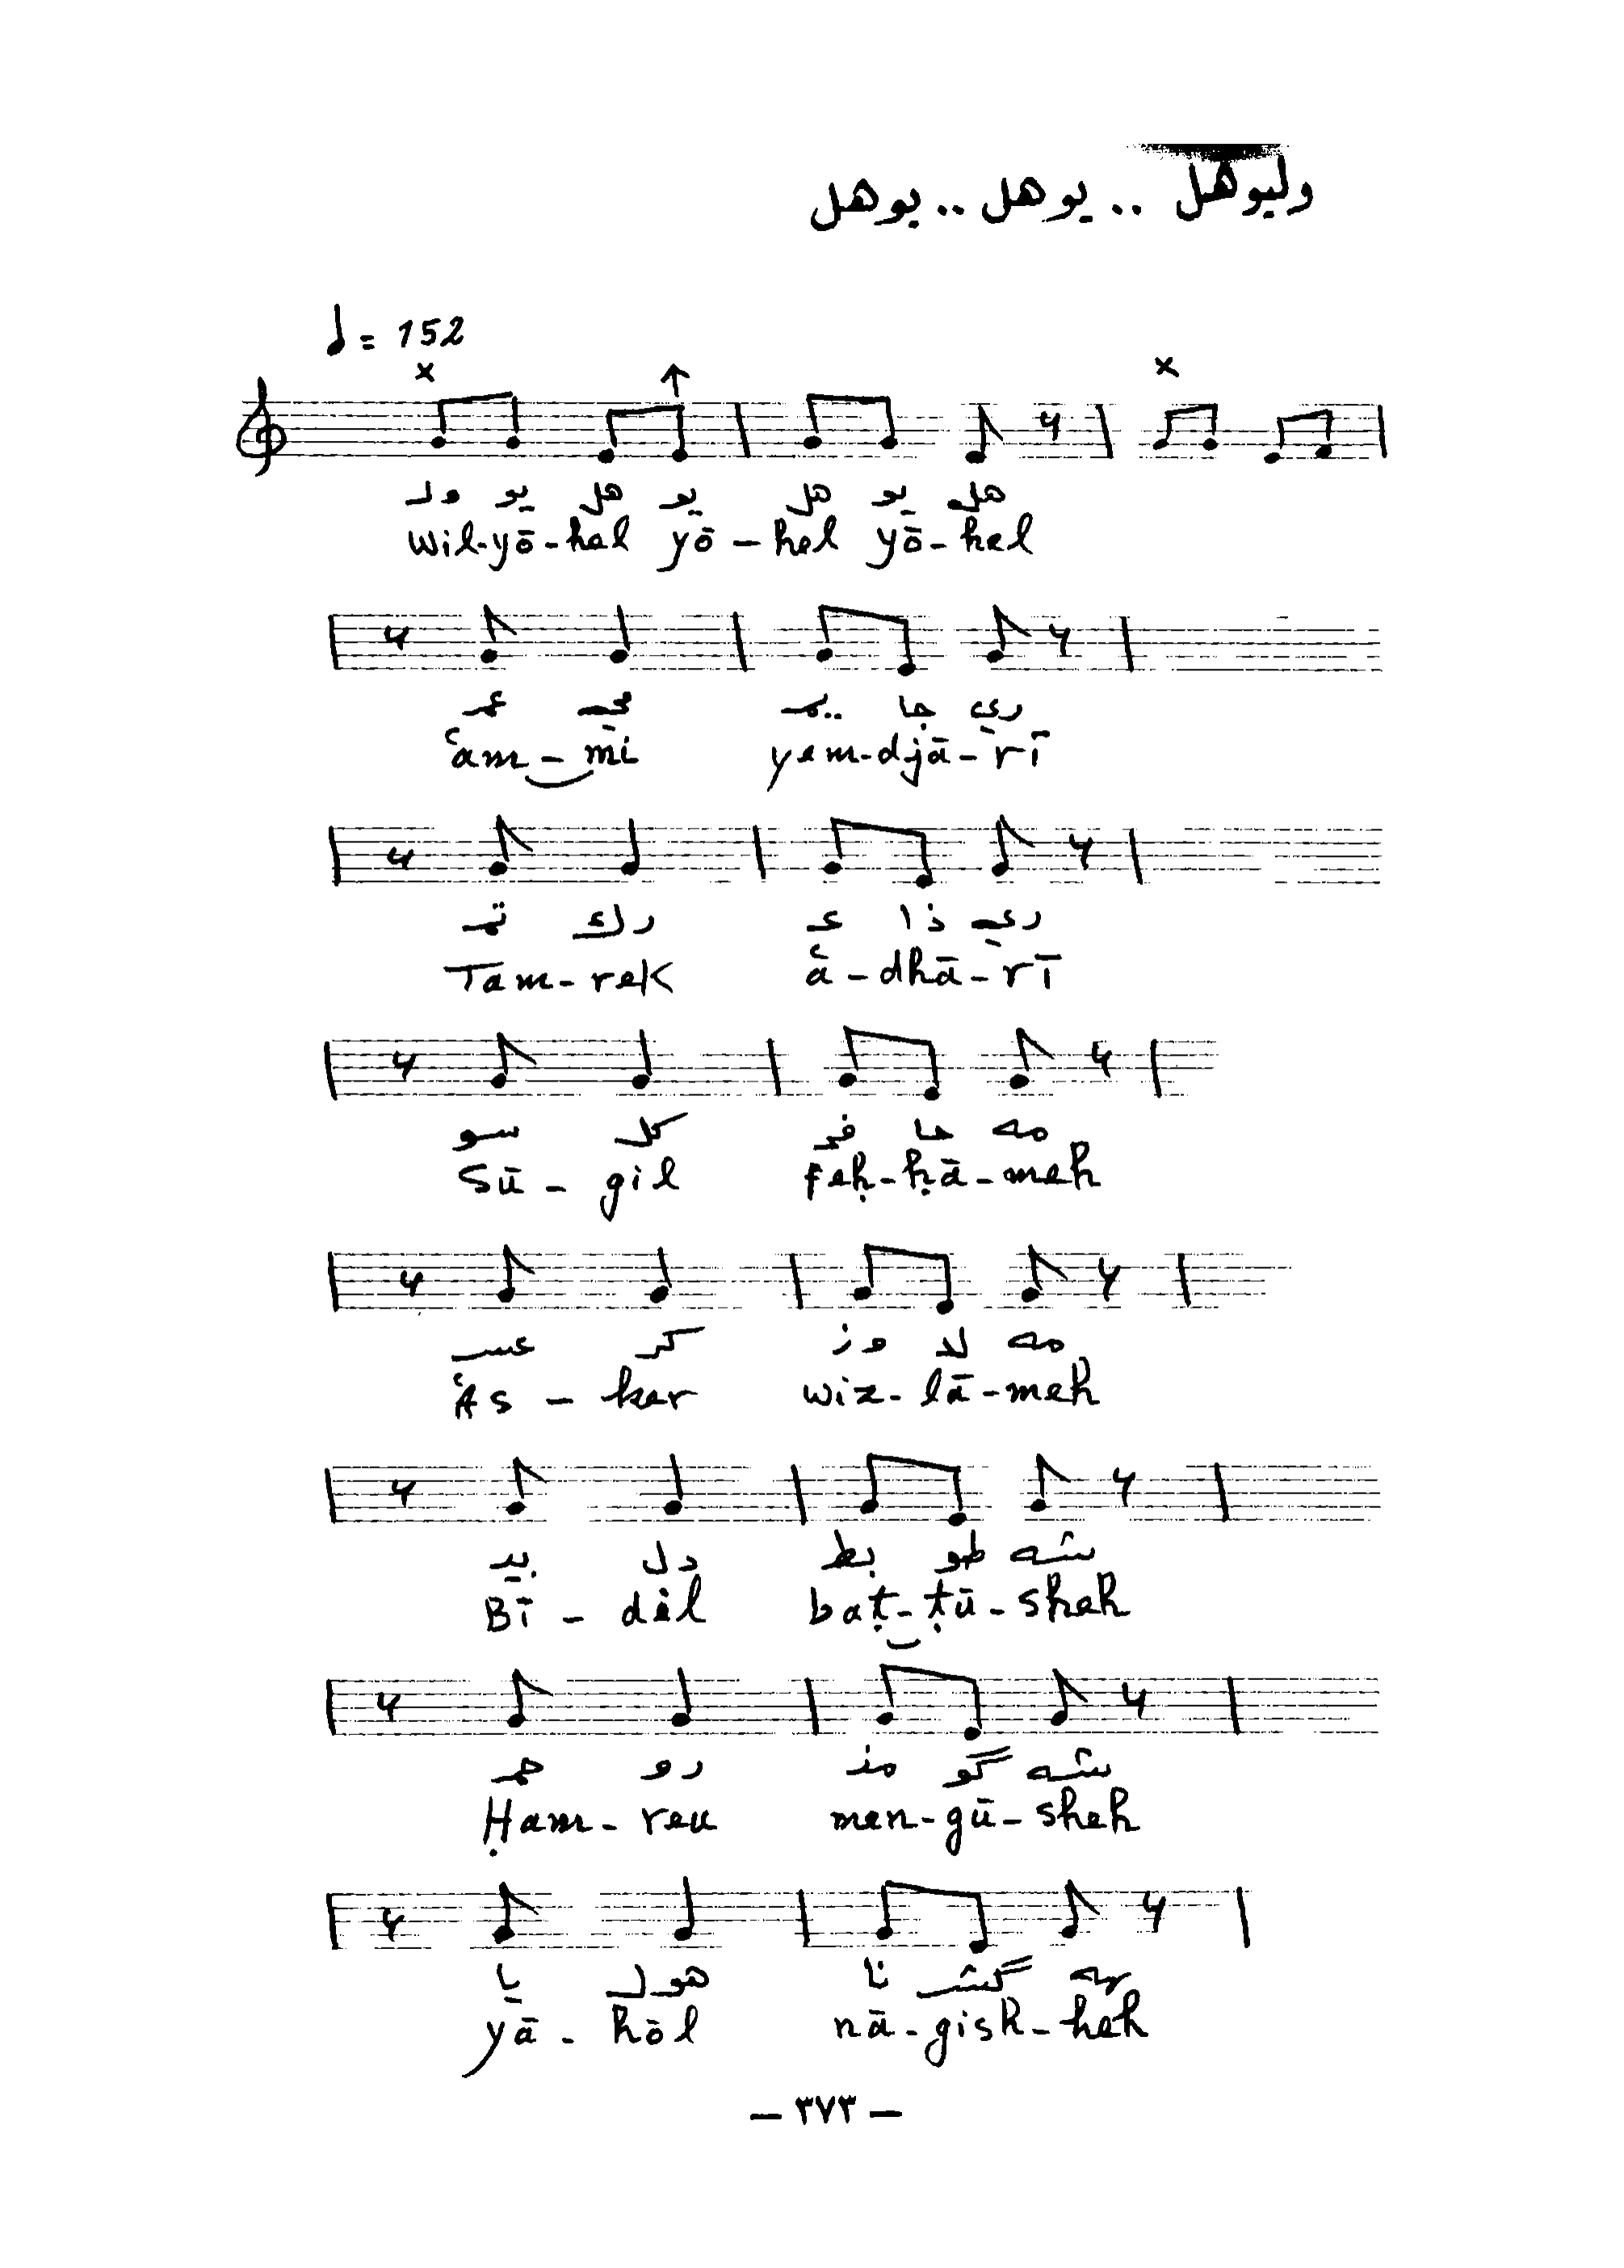 وليوهل .. يوهل .. يوهل
♩ = 152
x ↑ x
ولـ يو هل يو هل يو هل
wil-yō-hel yō-hel yō-hel
عمـ مي يمـ.. جا ري
ʿam-mi yem-djā-rī
تمـ رك عـ ذا ري
Tam-rek ʿa-dhā-rī
سو كل فحـ حا مه
Sū-gil feḥ-ḥā-meh
عسـ كر وز لا مه
ʿAs-ker wiz-lā-meh
بيـ دل بط طو شه
Bī-dèl baṭ-ṭū-sheh
حمـ رو منـ گو شه
Ḥam-reu men-gū-sheh
يا هولـ نا گشـ هه
yā-hōl nā-gish-heh
– ٣٧٣ –